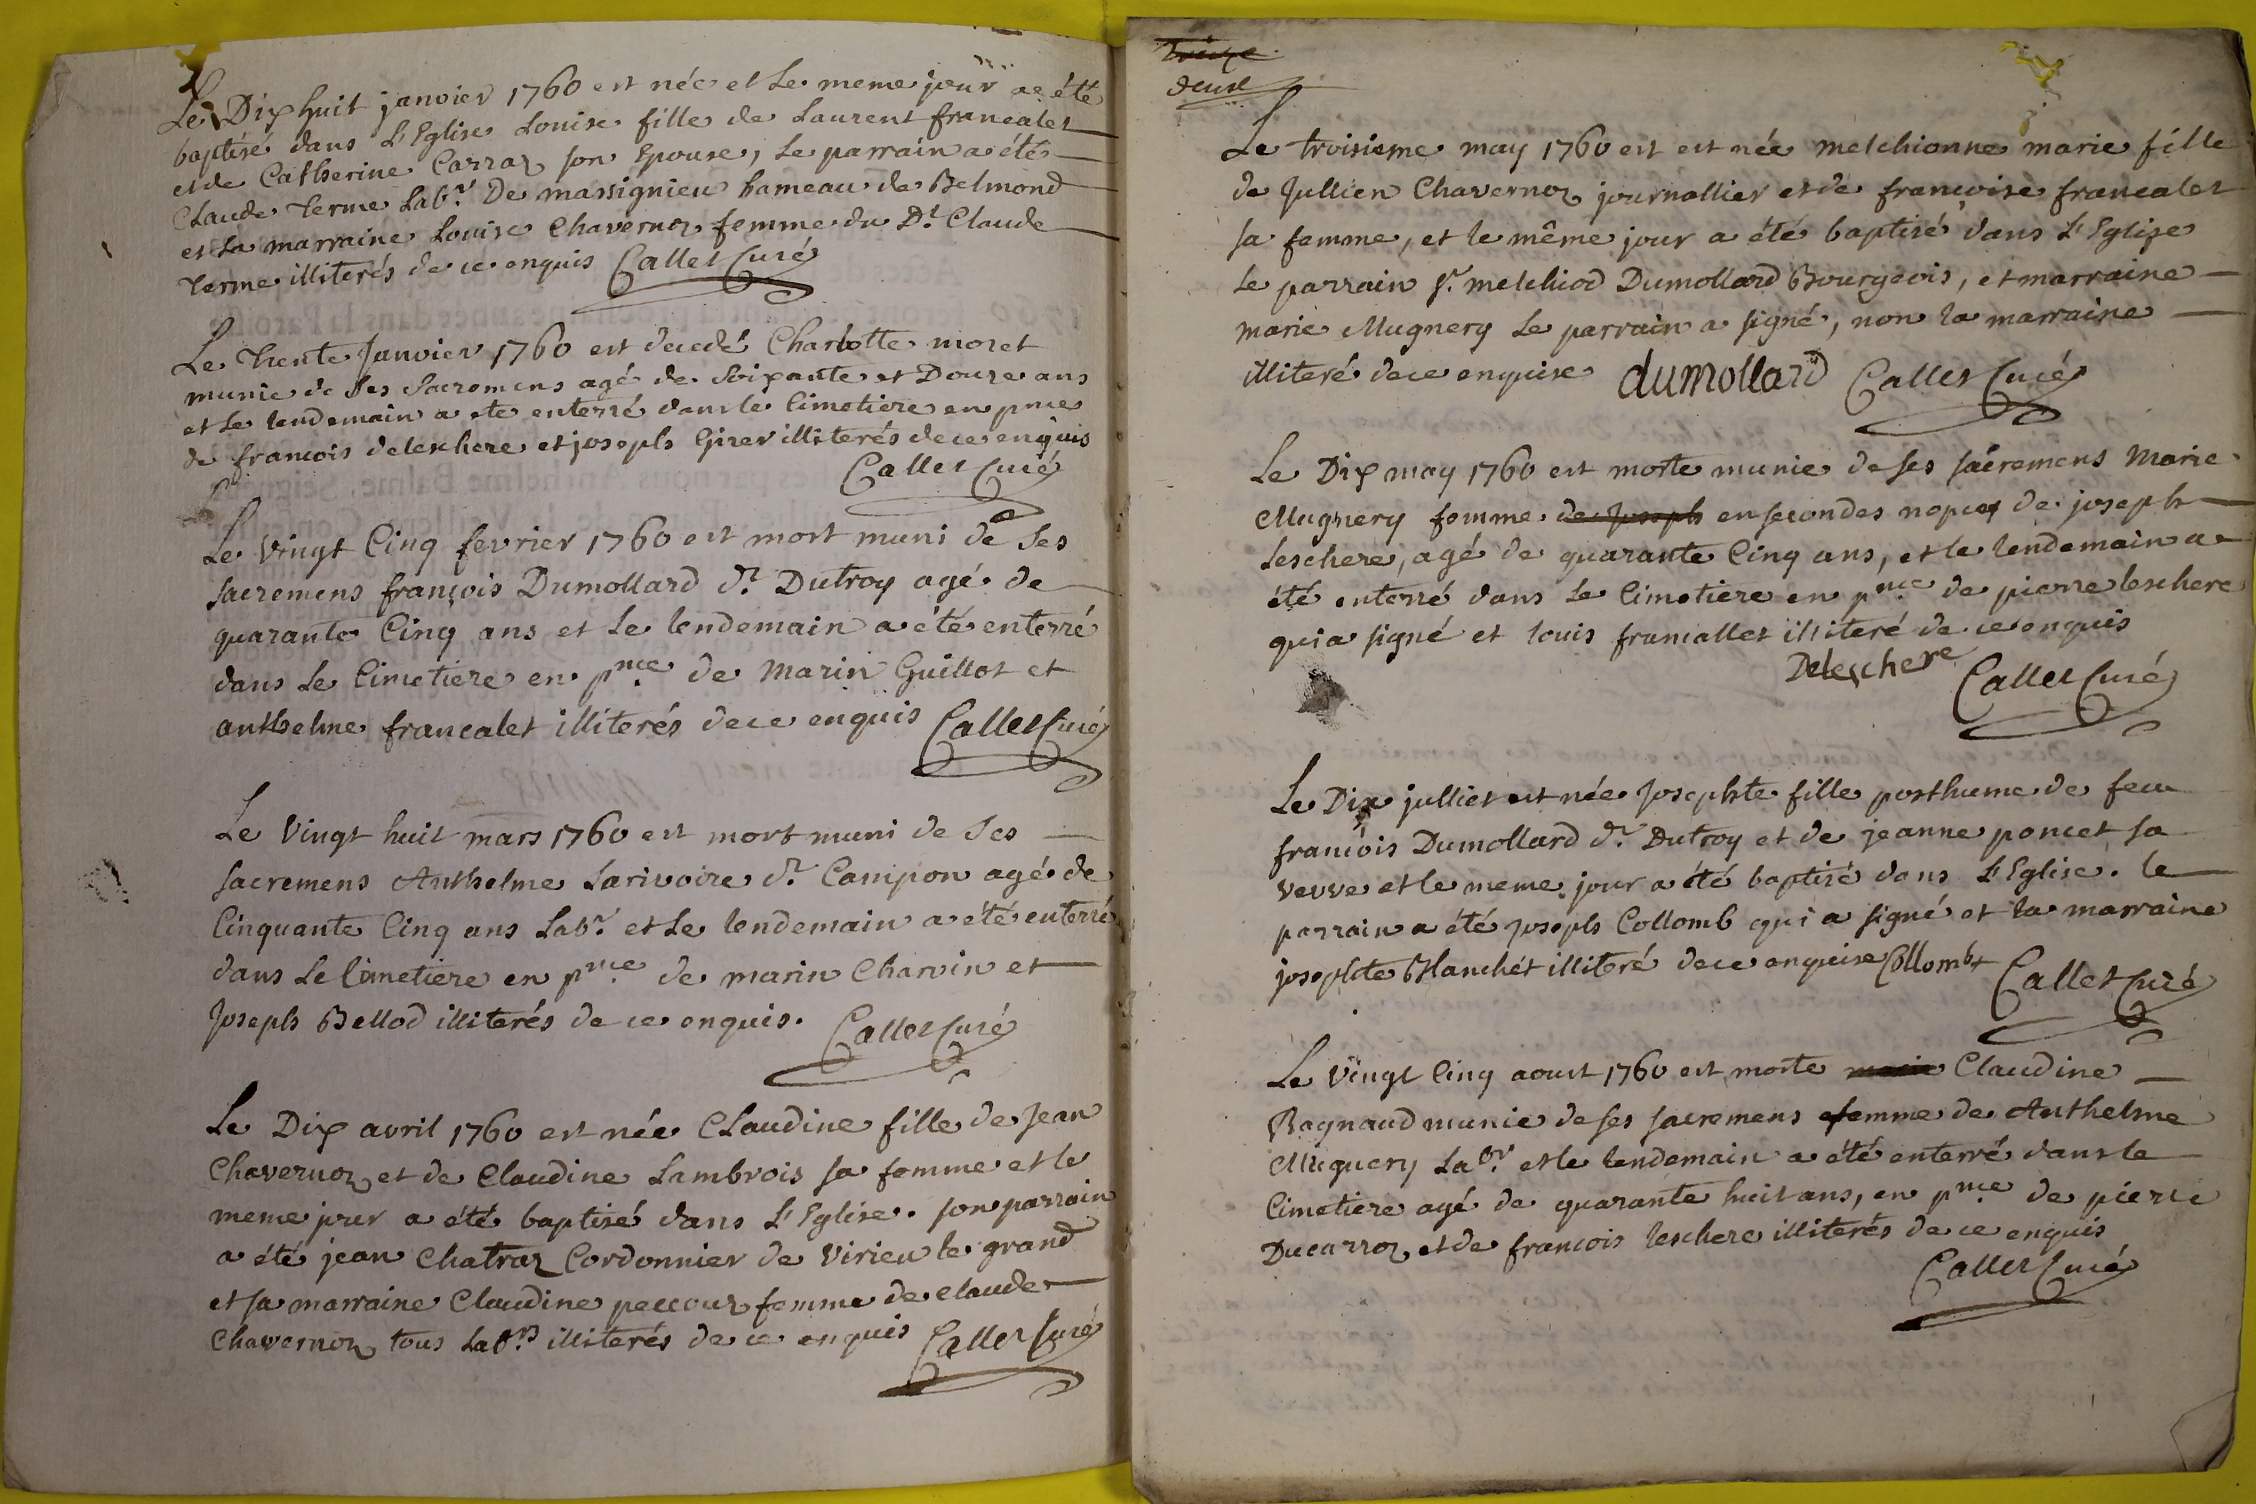 Le Dix huit janvier 1760 est née et le meme jour a été
baptisé dans L'Eglise Louise fille de Laurent francalet
et de Catherine Carraz son Epouse, le parrain a été
Claude Terme Lab.r De massignieu hameau de Belmond
et la marraine Louise Chavernoz femme du D.t Claude
Terme illiterés de ce enquis Callet Curé
Le Trente Janvier 1760 est decedé Charlotte moret
munie de ses Sacremens agé de Soixante et Douze ans
et le lendemain a eté enterré dans le Cimetiere en pnce
de francois deleschere et joseph Girer illiterés de ce enquis
Callet Curé
Le Vingt Cinq fevrier 1760 est mort muni de Ses
sacremens françois Dumollard d.t Dutroy agé de
quarante Cinq ans et le lendemain a été enterré
dans Le Cimetiere en pnce de Marin Guillot et
anthelme francalet illiterés de ce enquis Callet Curé
Le Vingt huit mars 1760 est mort muni de Ses
sacremens Anthelme Larivoire d.t Campion agé de
Cinquante Cinq ans Lab.r et Le lendemain a été enterré
dans Le Cimetiere en pnce de marin Charvin et
Joseph Bellod illiterés de ce enquis. Callet Curé
Le Dix avril 1760 est née Claudine fille de Jean
Chavernoz et de Claudine Lambrois sa femme et le
meme jour a été baptisé dans L'Eglise. son parrain
a été jean Chatraz Cordonnier de Virieu le grand
et sa marraine Claudine peccouz femme de claude
Chavernoz tous Lab.rs illiterés de ce enquis Callet Curé
deux
Le troisieme may 1760 est est née melchionne marie fille
de Jullien Chavernoz journallier et de françoise francalet
sa femme, et le même jour a été baptisé dans L'Eglise
Le parrain s.r melchiod Dumollard Bourgeois, et marraine
marie Mugnery Le parrain a signé, non la marraine
illiteré de ce enquise dumollard Callet Curé
Le Dix may 1760 est morte munie de ses sacremens Marie
Mugnery femme de Joseph en secondes nopces de joseph
Leschere, agé de quarante Cinq ans, et le lendemain a
été enterré dans Le Cimetiere en pnce de pierre leschere
qui a signé et louis francallet illiteré de ce enquis
Deleschere Callet Curé
Le Dix julliet est née Josephte fille posthume de feu
francois Dumollard d.t Dutroy et de jeanne poncet sa
veuve et le meme jour a été baptisé dans L'Eglise. le
parrain a été joseph Collomb qui a signé et la marraine
josephte Blanchet illiteré de ce enquise Collomb Callet Curé
Le Vingt Cinq aoust 1760 est morte marie Claudine
Raynaud munie de ses sacremens femme de Anthelme
Muguery Lab.r et le lendemain a été enterré dans le
Cimetiere agé de quarante huit ans, en pnce de pierre
Ducarroz et de francois leschere illiterés de ce enquis
Callet Curé